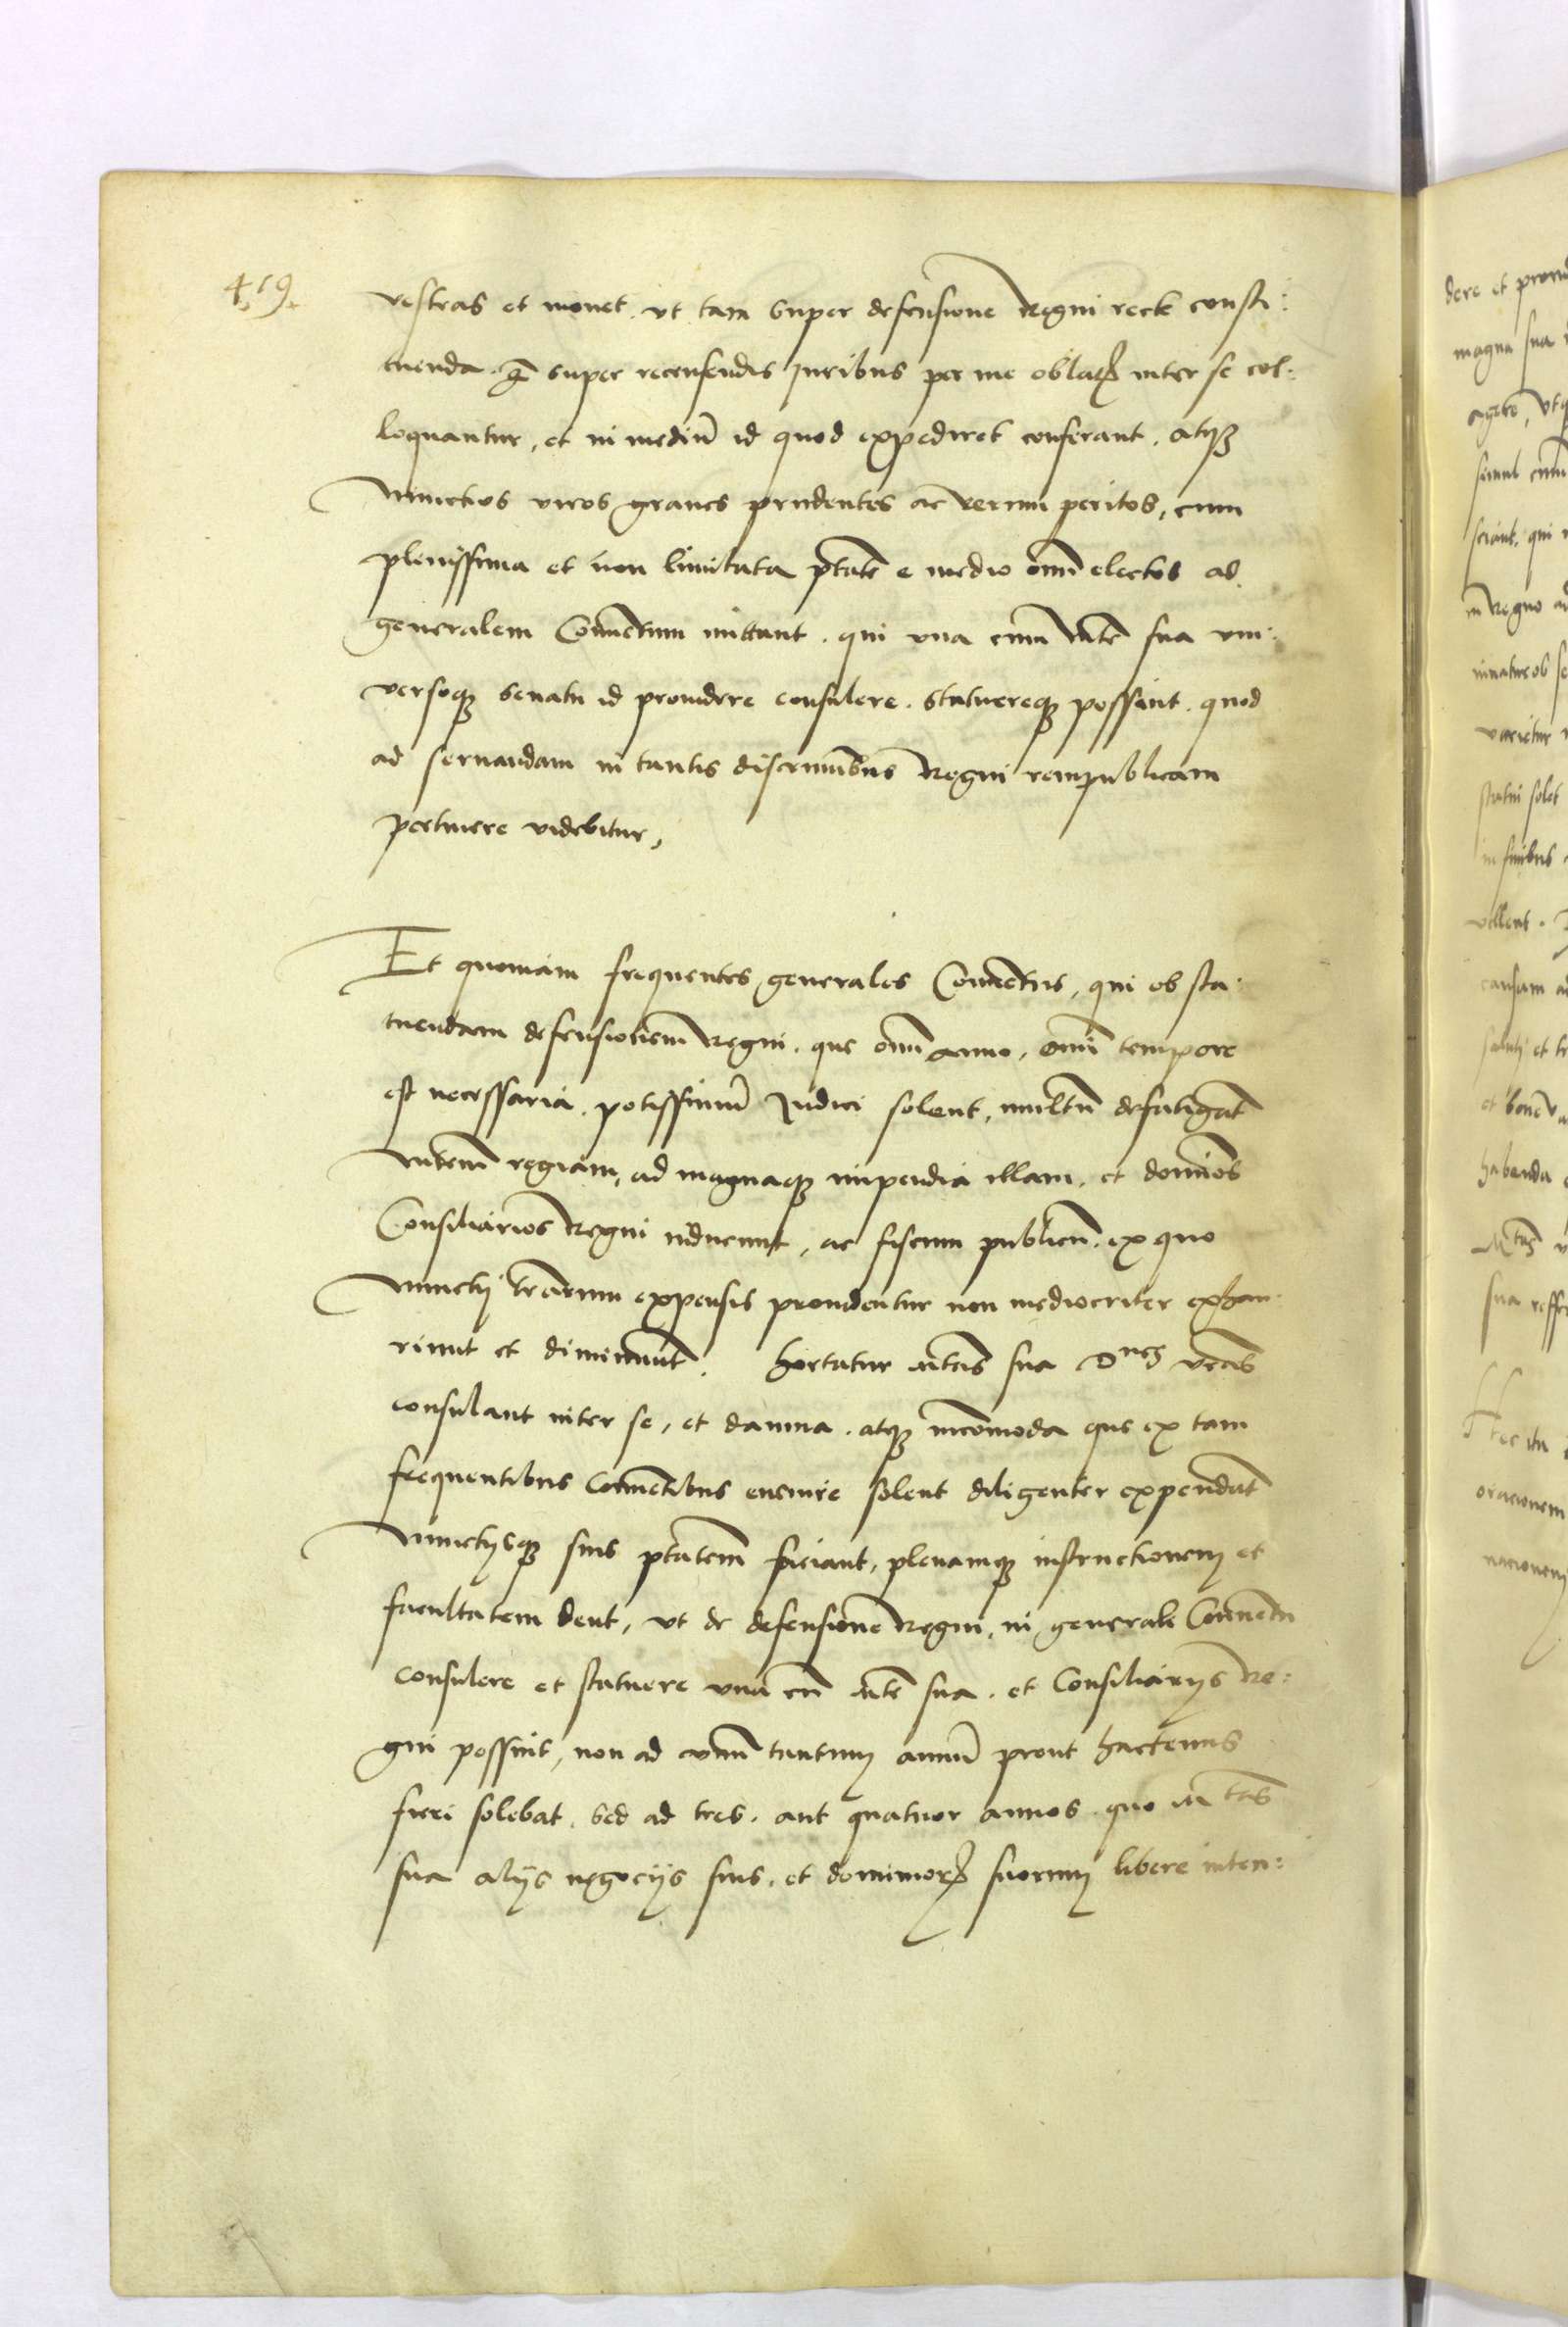 419.
vestras et monet. ut tam super defensione Regni recte consti:
tuenda. q̃ super recensendis Juribus per me oblatꝝ inter se col:
loquantur, et in mediũ id quod expediret conferant. atqꝫ
Nunctios viros graues prudentes ac rerum peritos, cum
plenissima et non limitata ptãte e medio oım̃ electos ad
generalem Conuentum mittant. qui vna cum Mte sua vni:
versoqꝫ senatu id prouidere consulere. statuereqꝫ possint. quod
ad seruandam in tantis discriminibus Regni rempublicam
pertinere videbitur,
Et quoniam frequentes generales Conuentus, qui ob sta:
tuendam defensionem Regni. que om̃i anno, om̃i tempore
est necessaria. potissimũ Judici solent, multũ defatigãt
Mtem regiam, ad magnaqꝫ impendia illam, et dominos
Consiliarios Regni inducunt, ac fiscum publicũ. ex quo
Nunctij trãrum expensis prouidentur non mediocriter exhau:
riunt et diminuunt. hortatur Mtas sua Dnes vrãs
consulant inter se, et damna. atqꝫ incõmoda que ex tam
frequentibus Conuentibus euenire solent diligenter expendãt
Nunctijsqꝫ suis ptãtem faciant, plenamqꝫ instructionem et
facultatem dent, ut de defensione Regni, in generali Conuentu
consulere et statuere vna cũ Mte sua. et Consiliarijs Re:
gni possint, non ad vnũ tantum annũ prout hactenus
fieri solebat. sed ad tres. aut quatuor annos. quo Mtas
sua alijs negocijs suis, et dominiorꝝ suorum libere inten:
dere et
magna sua
agere, ut
simul cum
sciant. qui
in Regno ad
varietur
statui solet
in finibus
vellent.
causam
et bene
habenda
sua
oracionem